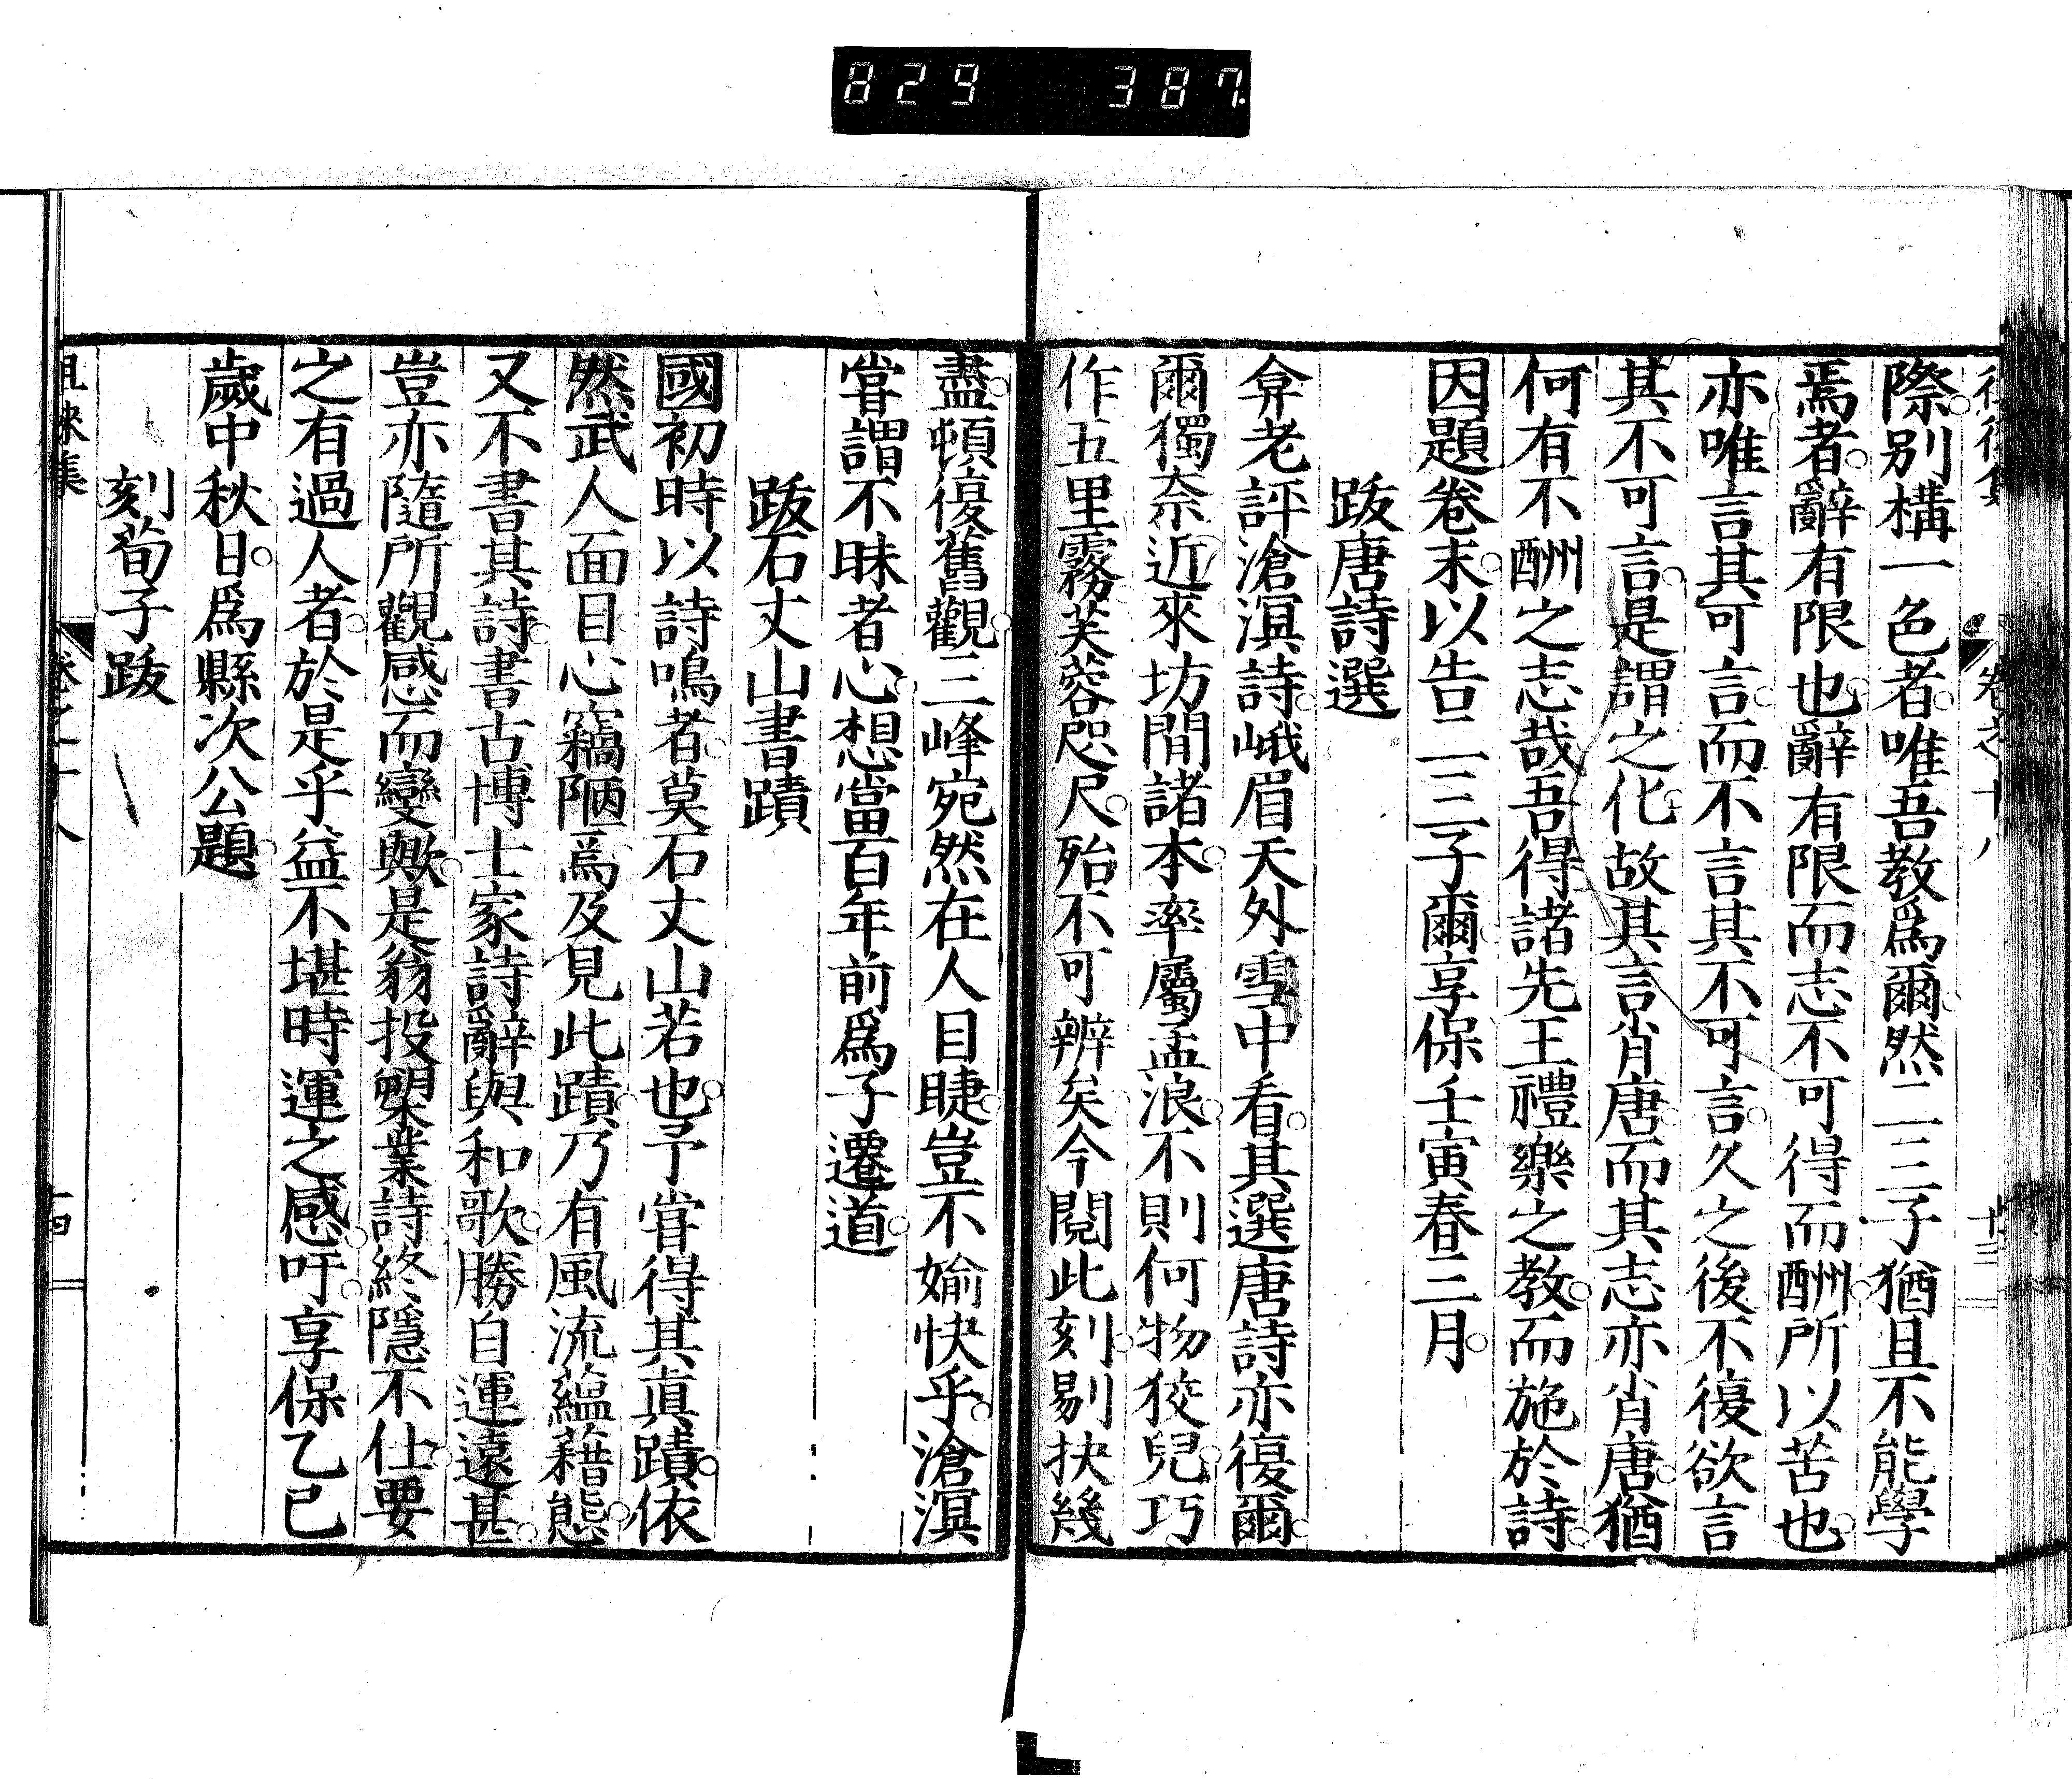 829 387
際別構一色者唯吾教爲爾然二三子猶且不能學
焉者辭有限也辭有限而志不可得而酬所以苦也
亦唯言其可言而不言其不可言久之後不復欲言
其不可言是謂之化故其言肖唐而其志亦肖唐猶
何有不酬之志哉吾得諸先王禮樂之教而施於詩
因題卷末以告二三子爾享保壬寅春三月
跋唐詩選
弇老評滄溟詩峨眉天外雪中看其選唐詩亦復爾
爾獨奈近來坊間諸本率屬孟浪不則何物狡兒巧
作五里霧芙蓉咫尺殆不可辨矣今閱此刻剔抉幾
盡頓復舊觀三峰宛然在人目睫豈不婾快乎滄溟
嘗謂不昧者心想當百年前爲子遷道
跋石丈山書蹟
國初時以詩鳴者莫石丈山若也予嘗得其眞蹟依
然武人面目心竊陋焉及見此蹟乃有風流蘊藉態
又不書其詩書古博士家詩辭與和歌勝自運遠甚
豈亦隨所觀感而變歟是翁投槊業詩終隱不仕要
之有過人者於是乎益不堪時運之感吁享保乙巳
歲中秋日爲縣次公題
刻荀子跋
卷之十八
十四